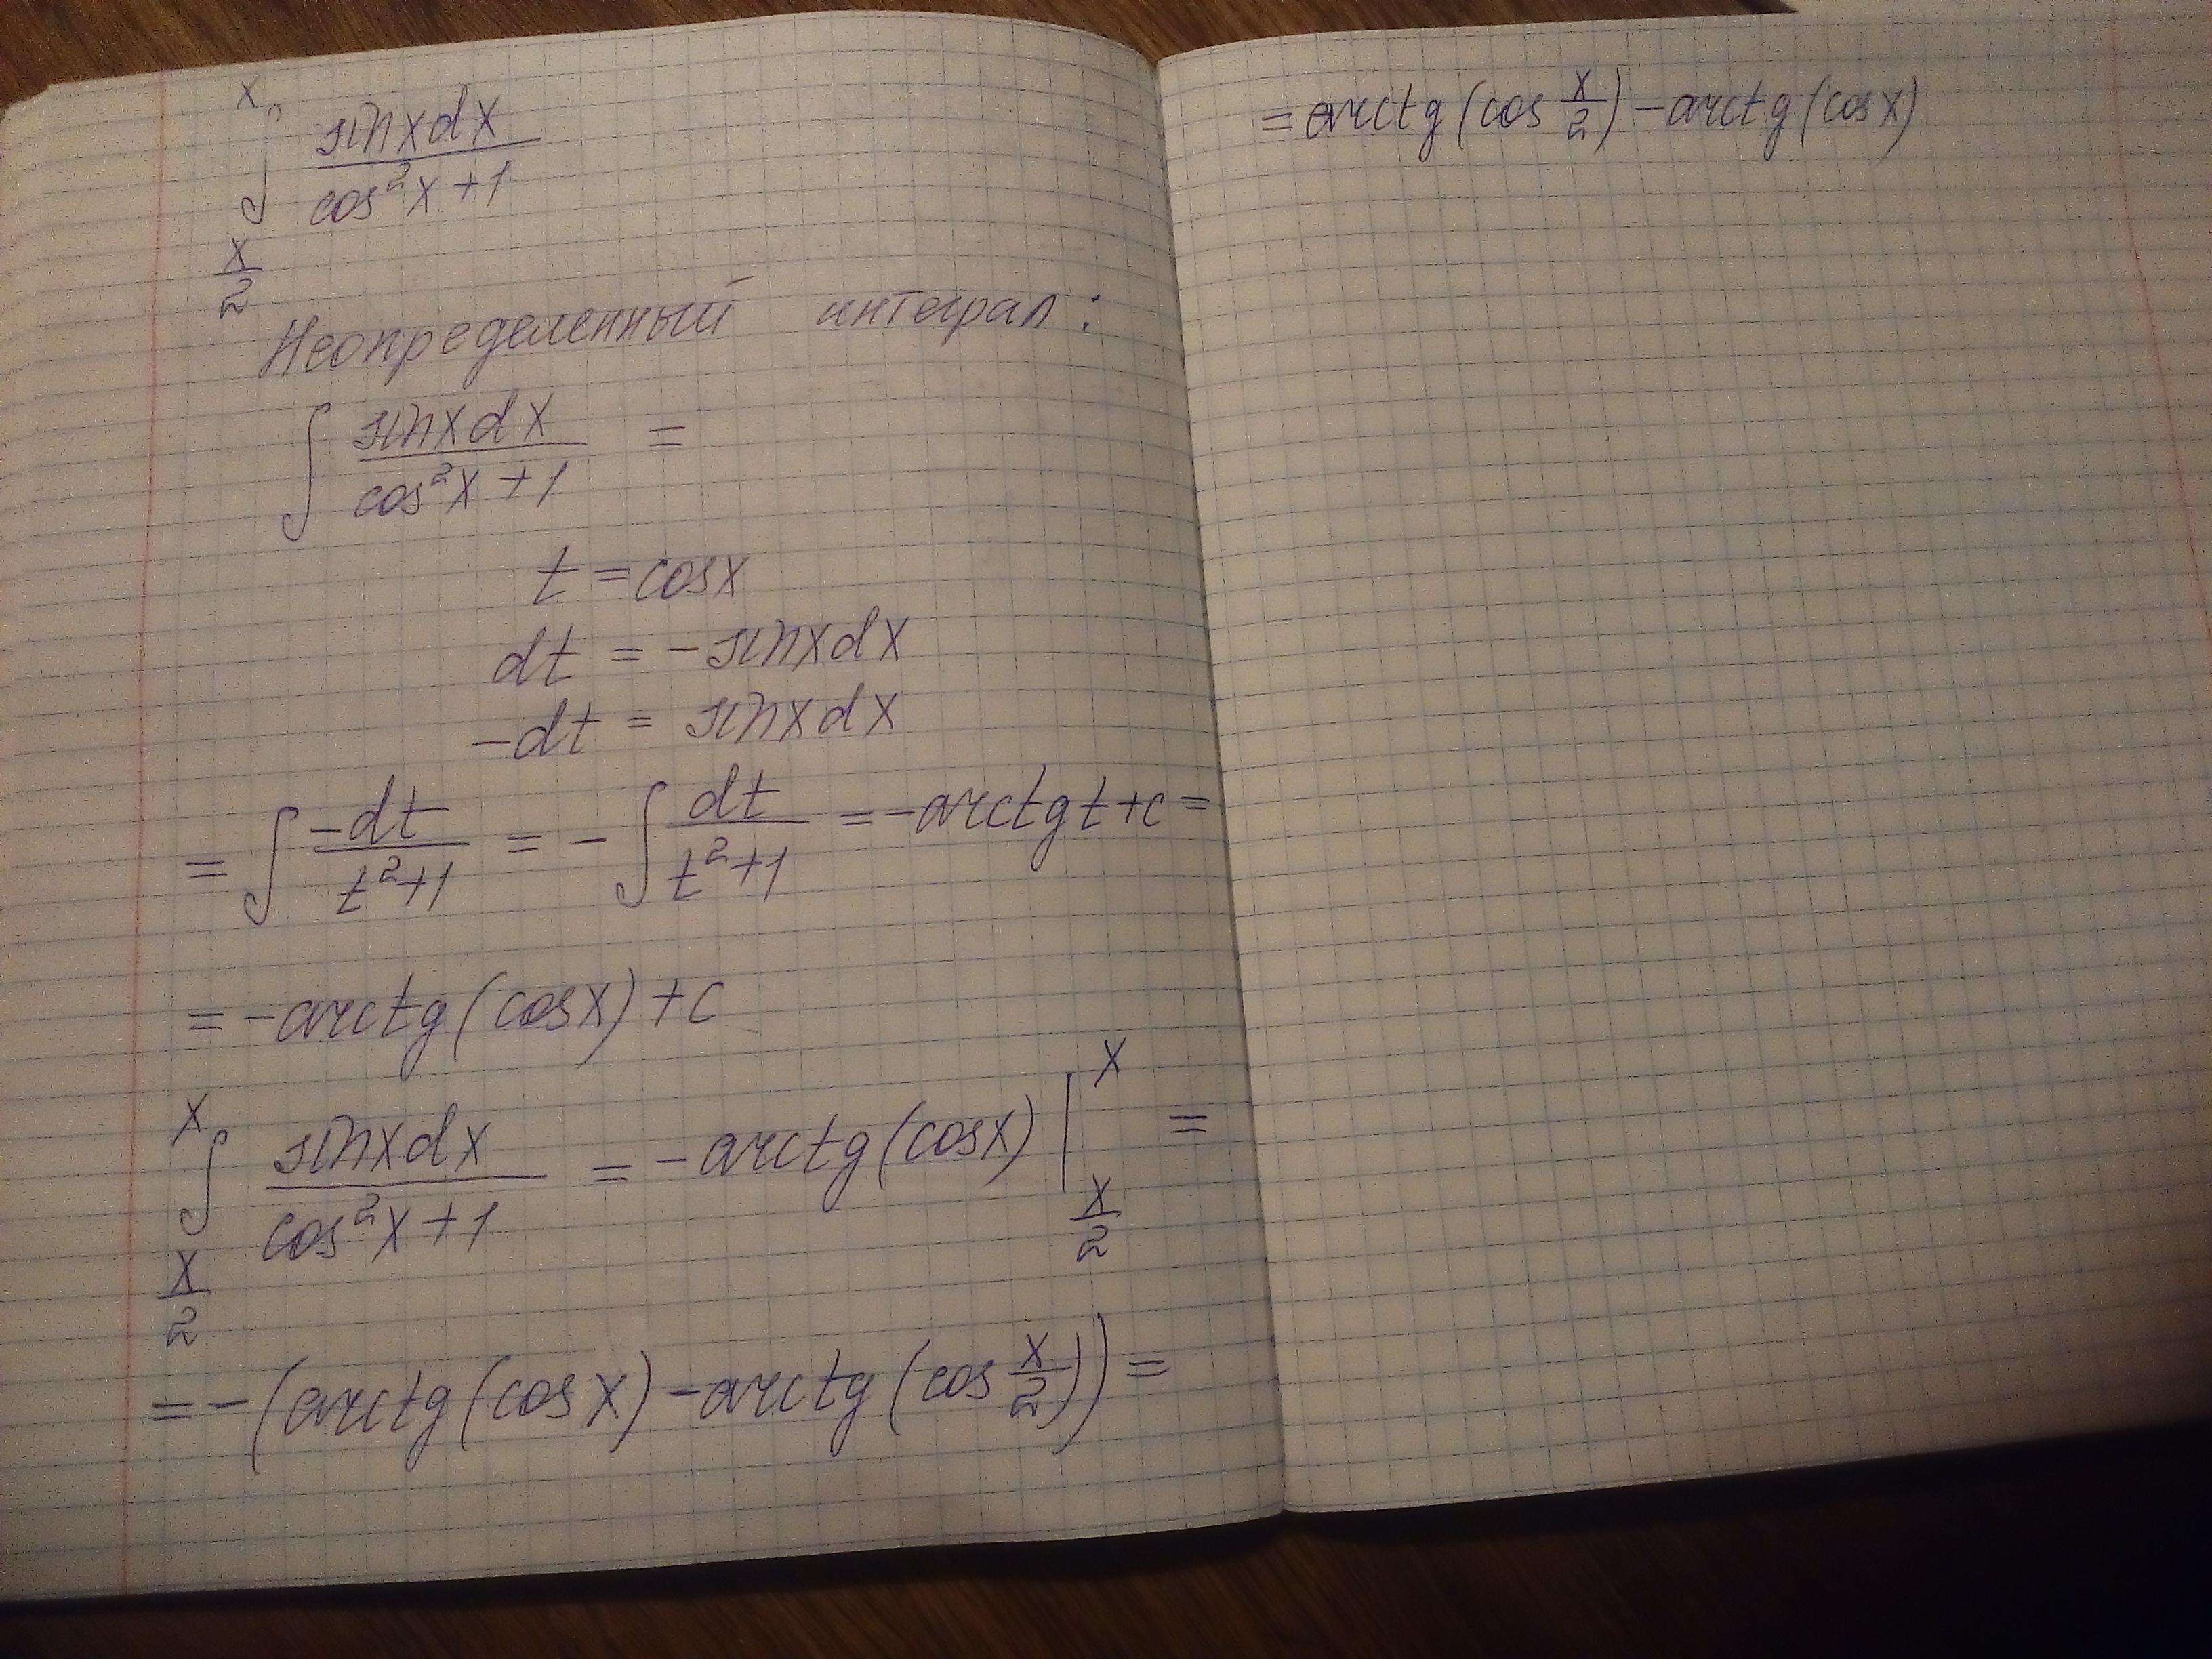 x
∫ sinxdx / cos²x+1
x/2
Неопределенный интеграл:
∫ sinxdx / cos²x+1 =
t=cosx
dt = -sinxdx
-dt = sinxdx
= ∫ -dt / t²+1 = - ∫ dt / t²+1 = -arctg t+c =
= -arctg(cosx)+c
x
∫ sinxdx / cos²x+1 = -arctg(cosx) | x =
x/2 x/2
= -(arctg(cos x) - arctg(cos x/2)) =
= arctg(cos x/2) - arctg(cosx)